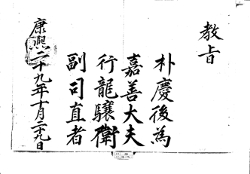 教旨
朴慶後為
嘉善大夫
行龍驤衛
副司直者
康熙二十九年十月二十九日